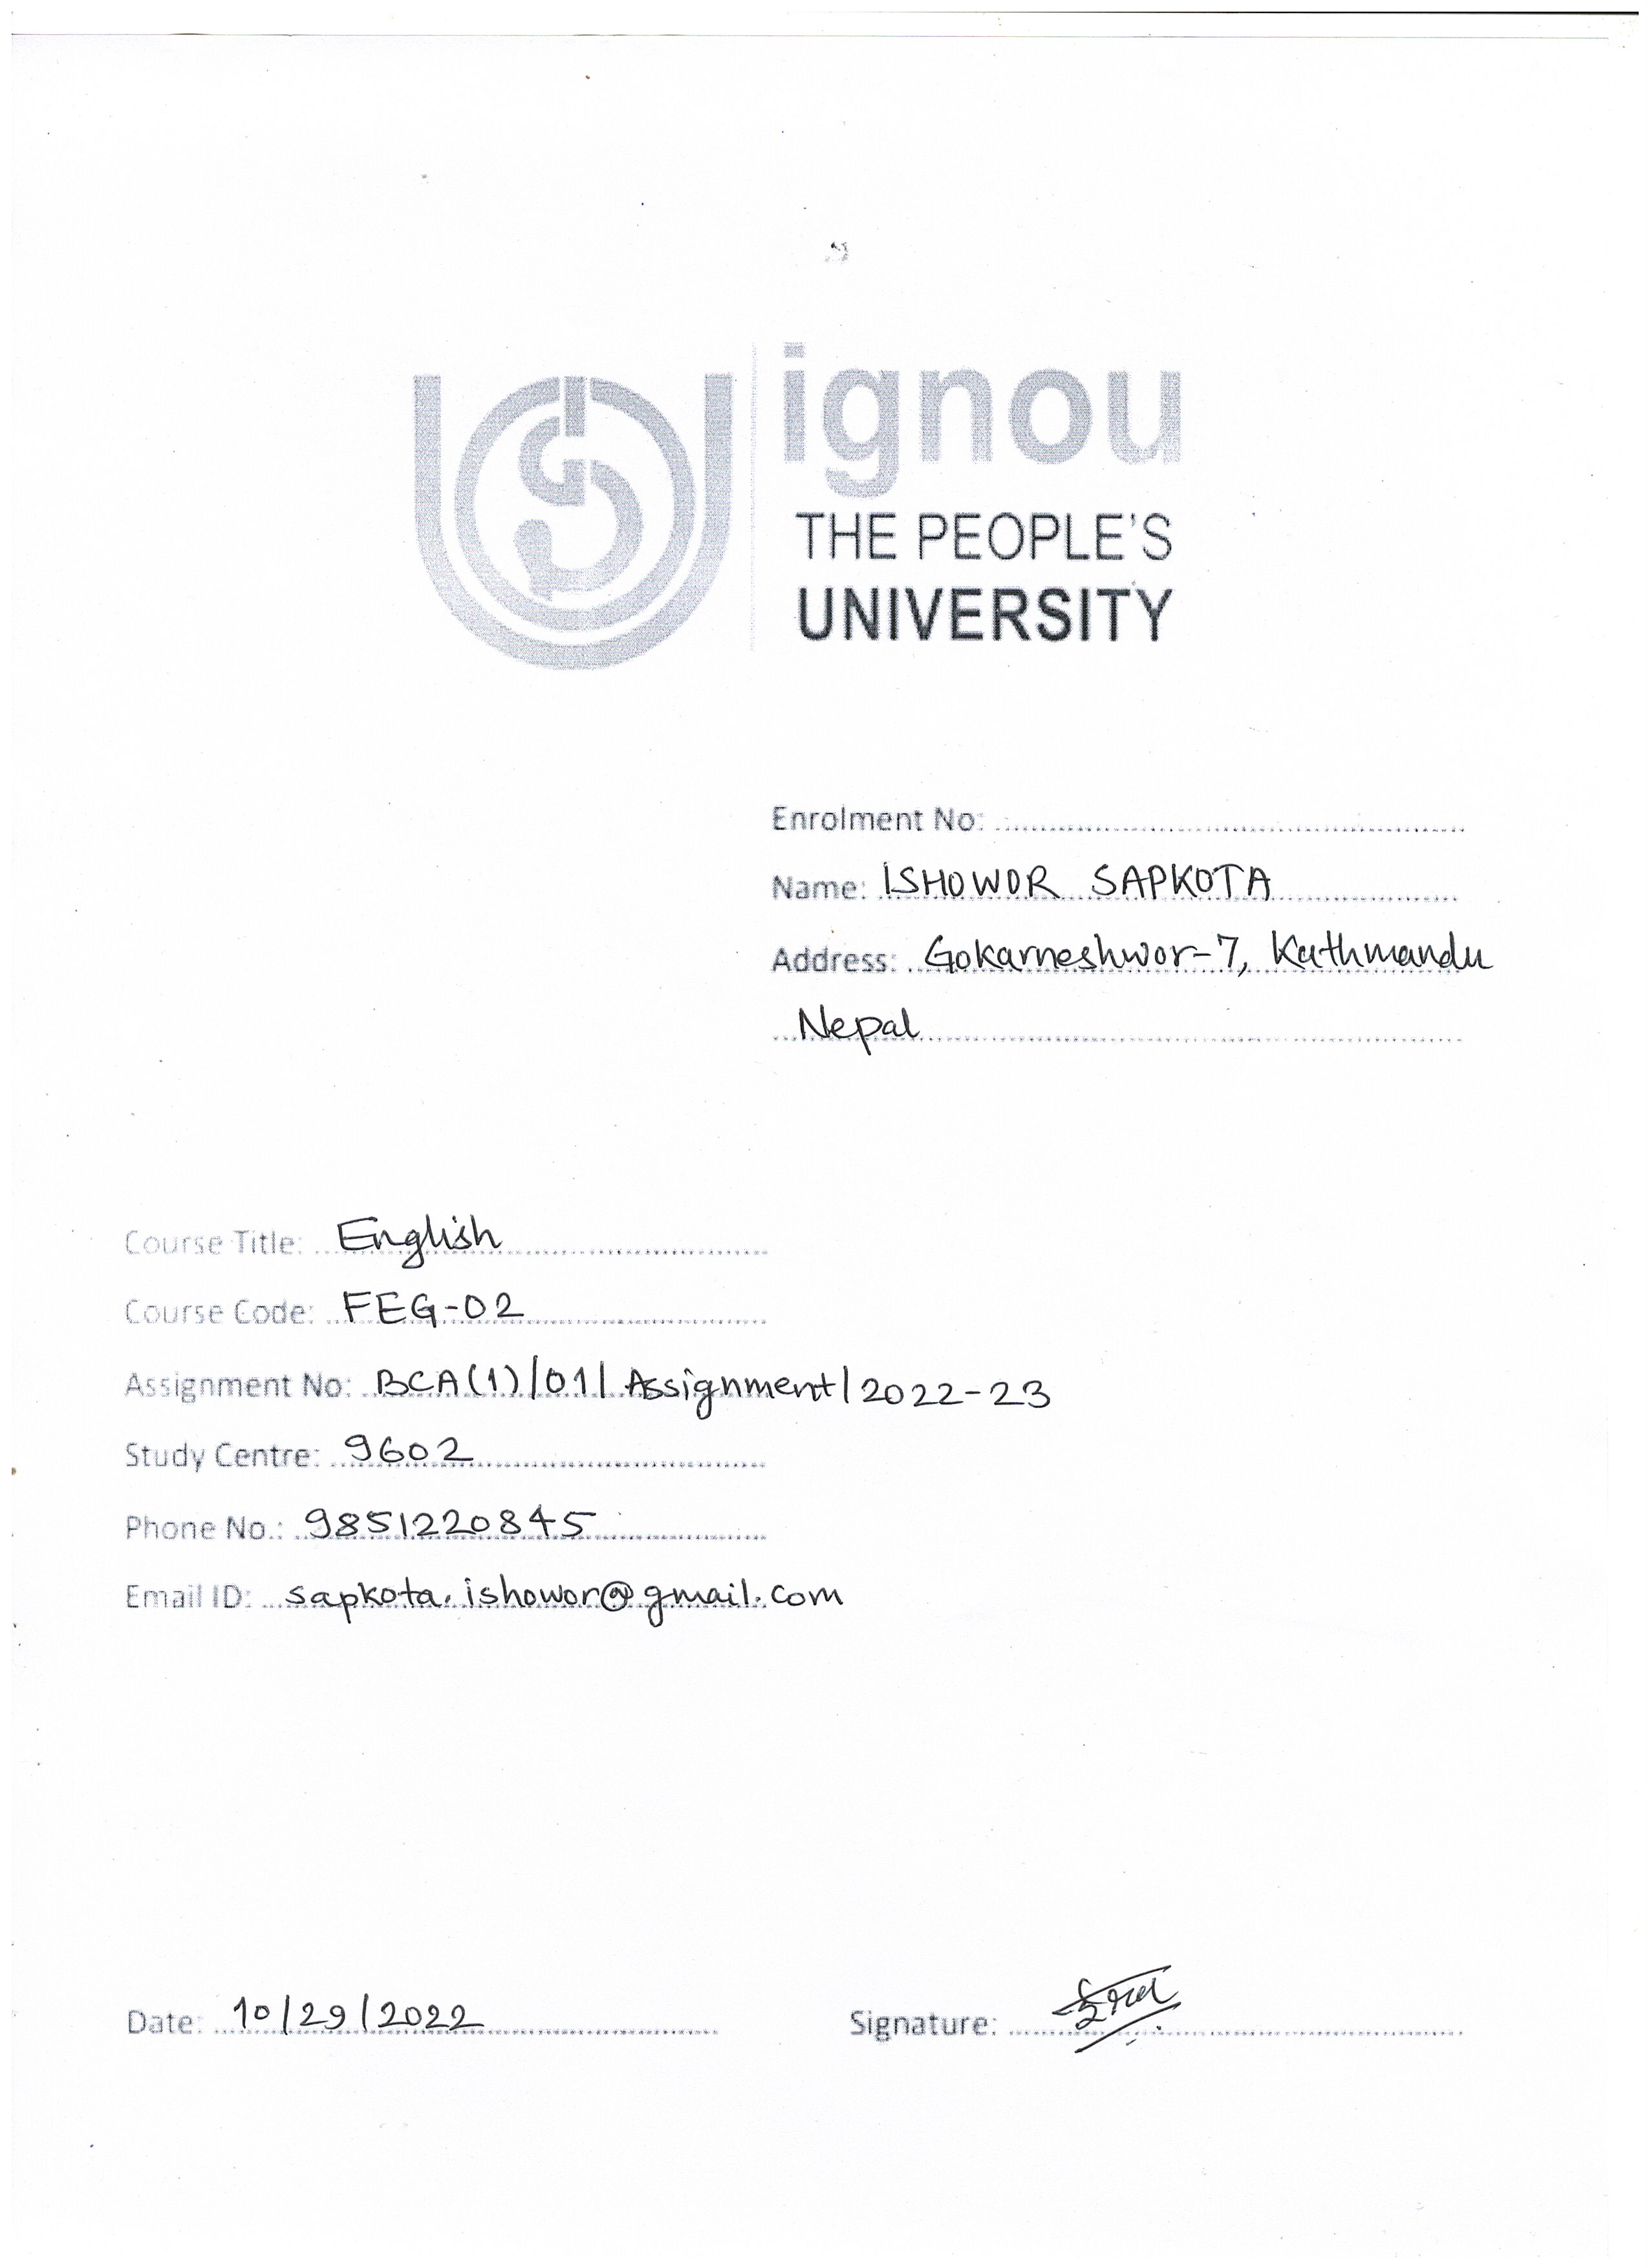 ignou
THE PEOPLE'S
UNIVERSITY
Enrolment No:
Name: ISHOWOR SAPKOTA
Address: Gokarneshwor-7, Kathmandu
Nepal
Course Title: English
Course Code: FEG-02
Assignment No: BCA(1)/01/Assignment/2022-23
Study Centre: 9602
Phone No.: 9851220845
Email ID: sapkota.ishowor@gmail.com
Date: 10/29/2022
Signature: